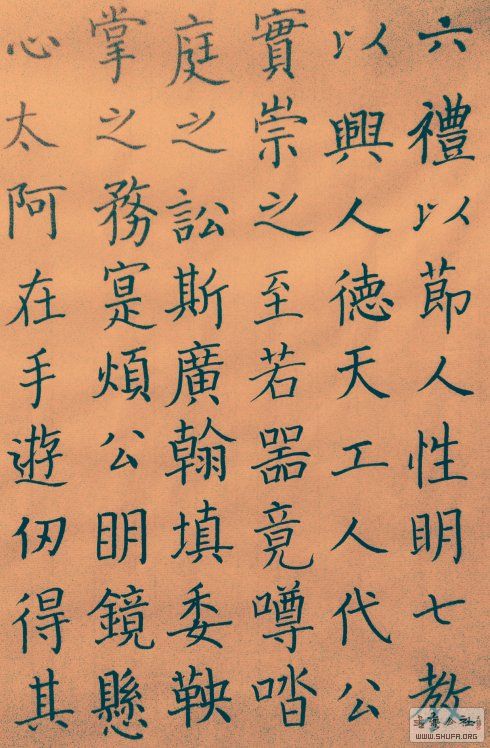 六禮以節人性明七教
以興人德天工人代公
實崇之至若噐竟噂
庭之訟斯廣翰填委鞅
掌之務寔煩公明鏡懸
心太阿在手遊仞得其
WWW.SHUFA.ORG